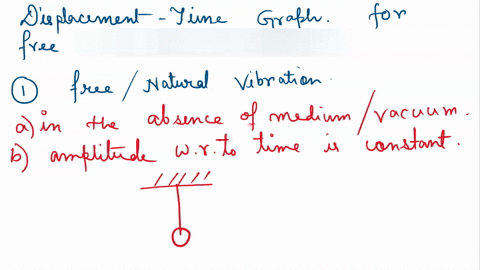 Displacement - Time Graph. for
free
① free / Natural Vibration.
a) in the absence of medium / vacuum.
b) amplitude w.r.to time is constant.